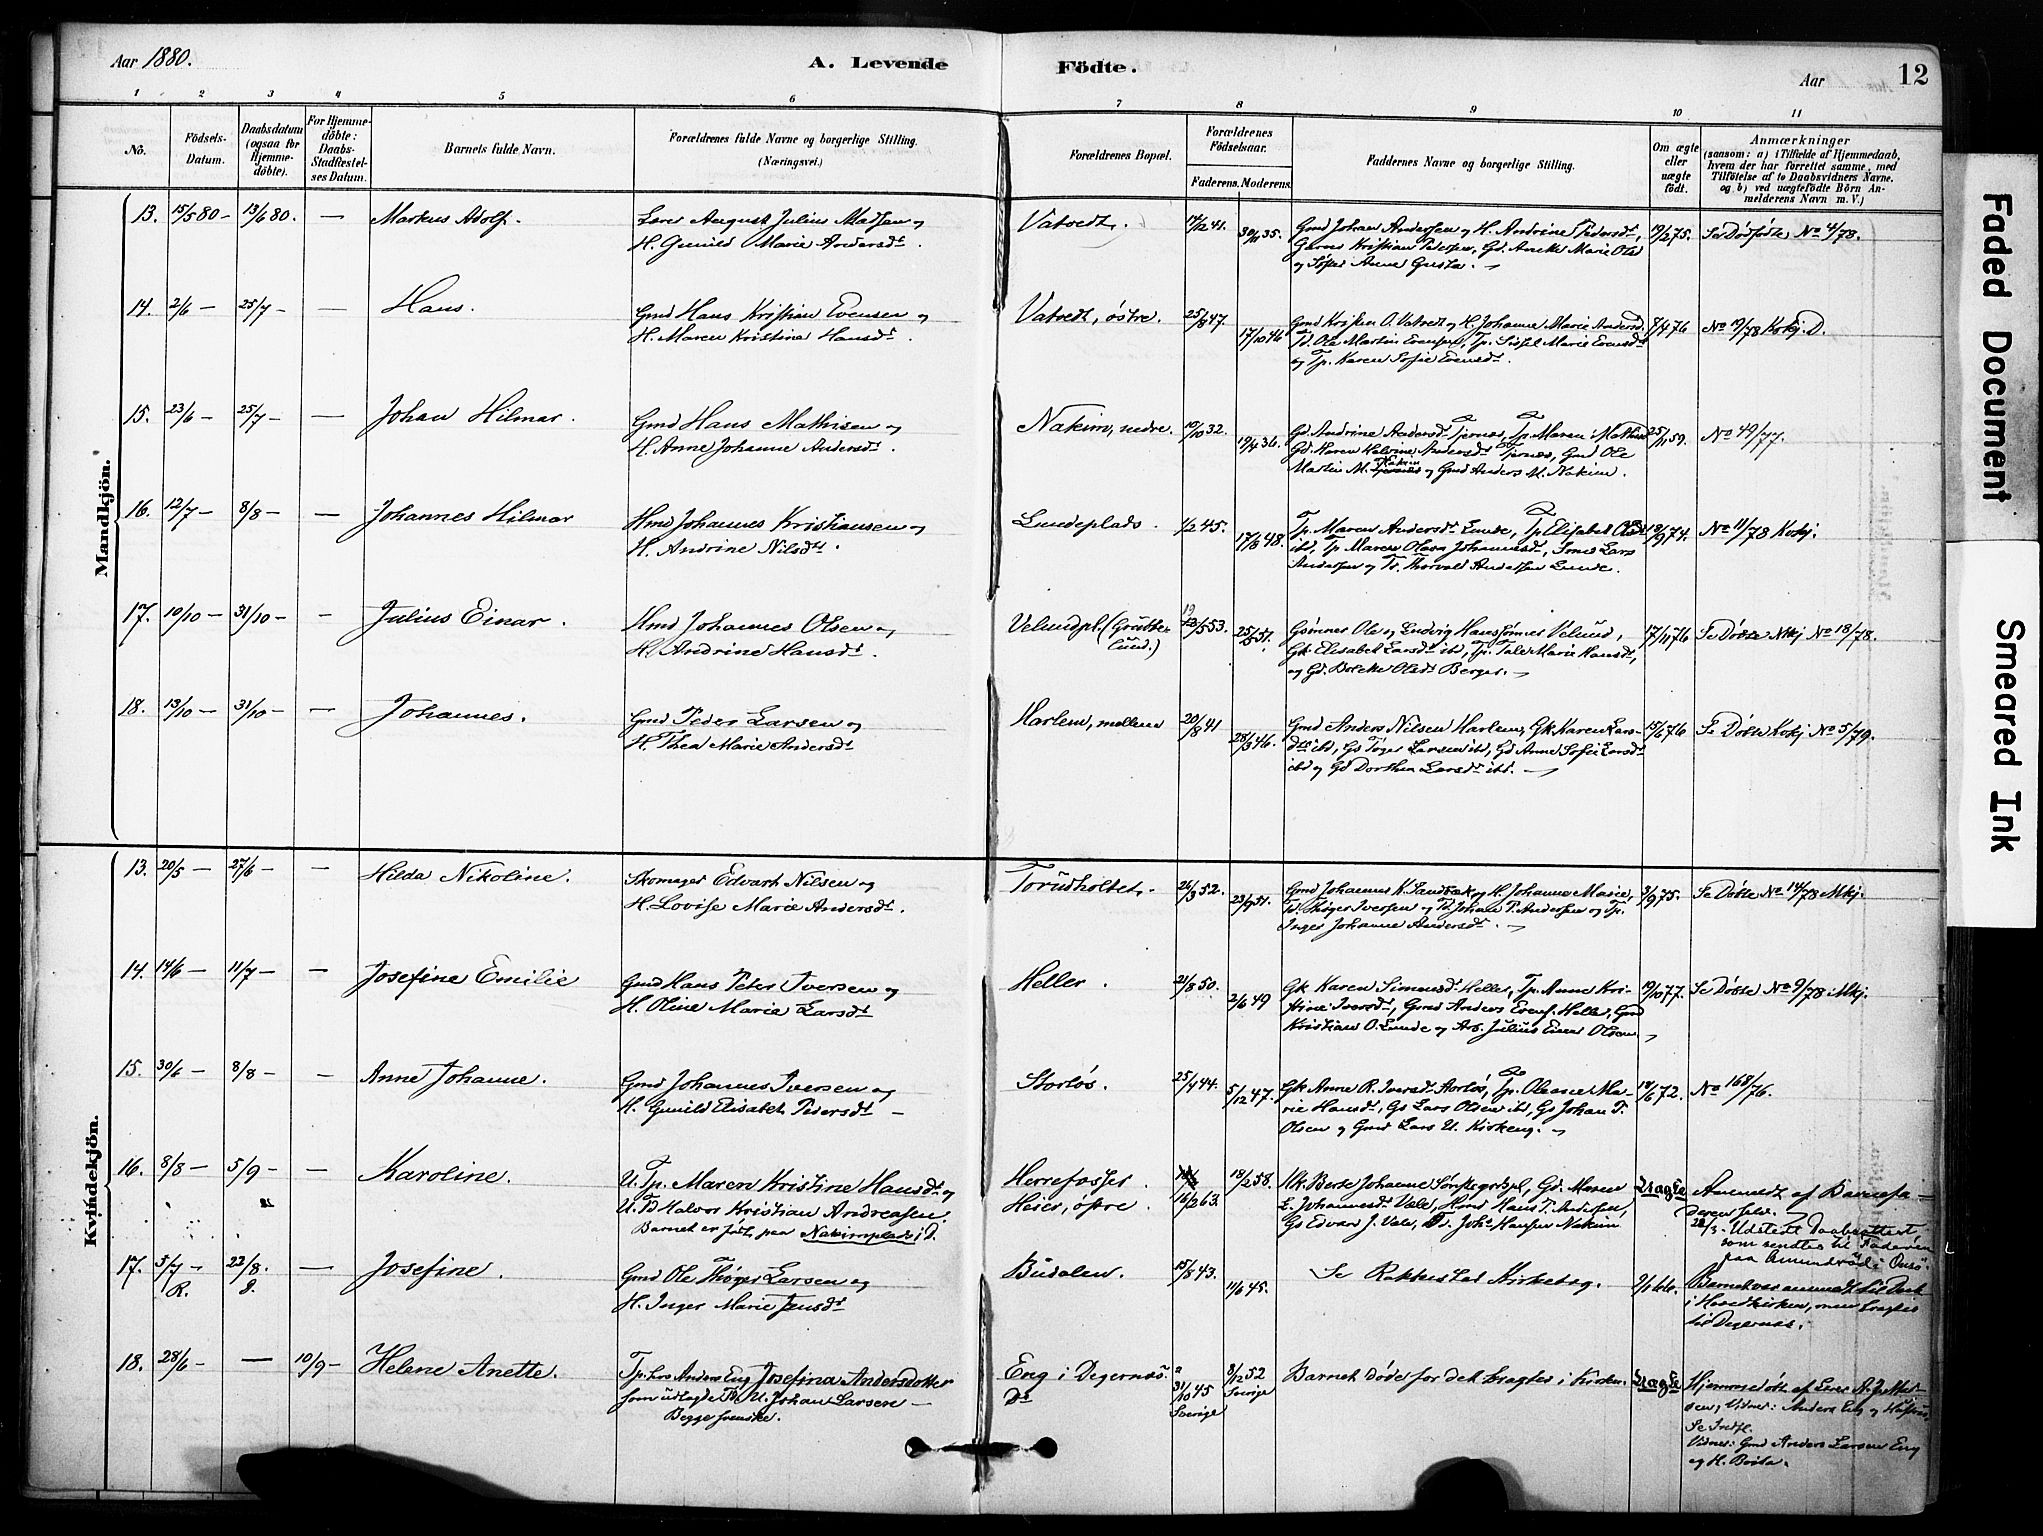 Aar 1880.
A. Levende
Födte.
Aar
12
1 2 3 4 5 6 7 8 9 10 11
No.
Födsels-
Datum.
Daabsdatum
(ogsaa for
Hjemme-
döbte).
For Hjemme-
döbte:
Daabs-
Stadfæstel-
ses Datum.
Barnets fulde Navn.
Forældrenes fulde Navne og borgerlige Stilling.
(Næringsvei.)
Forældrenes Bopæl.
Forældrenes
Födselsaar.
Faderens. Moderens.
Faddernes Navne og borgerlige Stilling.
Om ægte
eller
uægte
födt.
Anmærkninger
(saasom: a) i Tilfælde af Hjemmedaab,
hvem der har forrettet samme, med
Tilföielse af to Daabsvidners Navne.
og b) ved uægtefödte Börn An-
melderens Navn m. V.)
Mandkjön.
13. 15/5 80 - 13/6 80. — Markus Adolf.
Lærer August Julius Madsen og
H. Gunild Marie Andersdt.
Vatvedt.
30/11 35.
Gmd Johan Andersen og H. Andrine Pedersdt,
19/2 75.
Se Dødfødte No 4/78.
14. 2/6 — 25/7 — — Hans.
Gmd Hans Kristian Evensen og
H. Maren Kristine Hansdt.
Vatvedt, østre.
25/8 47.
17/10 46
Gmd Kristen O. Vatvedt og H. Johanne Marie Andersd.
Td. Ole Martin Evensen, Tp. Sissel Marie Evensdt
og Tp. Karen Sofie Evensdt.
No 9/78 Kvkj. D.
15. 23/6 — 25/7 — — Johan Hilmar.
Gmd Hans Mathisen og
H. Anne Johanne Andersdt.
Nakim, nedre.
19/10 32.
19/4 36.
Gd. Andrine Andersdt Tjernæs, Tp. Maren Mathisd
Gd. Maren Andersdt Tjernæs, Gmd Ole
Martin M. Nakim og Gmd Anders M. Nakim.
25/11 59.
No 49/77.
16. 12/7 — 8/8 — — Johannes Hilmar
Hmd Johannes Kristiansen og
H. Andrine Nilsdt.
Lundeplads.
1/2 45.
17/8 48.
Tp. Maren Andersdt Lunde, Tp Elisabet Olsdt
ibd, Tp Maren Olava Johannesdt, Smed Lars
Andersen og Td. Thorvald Andersen Lunde.
18/9 74.
No 11/78 Kvkj.
17. 10/10 — 31/10 — — Julius Einar.
Hmd Johannes Olsen og
H. Andrine Hansdt.
Velundpl.
19/5 53.
25/5 51.
Gsønner Ole og Ludvig Hanssønner Velund,
Gk. Elisabet Larsdt ibd, Tp. Tale Marie Hansdt,
og Gd. Bolette Olsdt Berger.
17/11 76
Se Døbte Mkj No 18/78.
18. 13/10 — 31/10 — — Johannes.
Gmd Peder Larsen og
H. Thea Marie Andersdt
Harlem, mellem
20/8 41
28/3 46.
Gmd Anders Nilsen Harlem, Gk Karen Lars-
datter ibd, Gs Tøger Larsen ibd, Gd Anne Sofie Larsdt
ibd og Gd Dorthea Larsdt ibd.
15/6 76
Se Døbte Kvkj No 5/79.
Kvindekjön.
13. 20/5 — 27/6 — — Hilda Nikoline.
Skomager Edvart Nilsen og
H. Lovise Marie Andersdt.
Torudholtet.
26/3 52.
23/9 51.
Gmd Johannes K. Sandbæk og H. Johanne Marie,
Td. Thøger Iversen og Td Johan P. Andersen og Tp.
Inger Johanne Andersdt.
3/9 75.
Se Døbte No 14/78 Mkj.
14. 14/6 — 11/7 — — Josefine Emilie
Gmd Hans Peter Iversen og
H. Oline Marie Larsdt
Heller.
21/8 50.
2/6 49
Gk Karen Simensdt Heller, Tp. Anne Kri-
stine Iversdt, Gmd Anders Evens. Heller, Gmd
Kristian O. Lunde og Arb. Julius Einar Olsen
19/10 77.
Se Døbte No 9/78 Mkj.
15. 30/6 — 8/8 — — Anne Johanne.
Gmd Johannes Iversen og
H. Gunild Elisabet Pedersdt —
Storløs.
25/4 44.
5/12 47.
Gk Anne R. Iversdt Storløs, Tp. Oleane Ma-
rie Hansdt, Gs Lars Olsen ibd, Gs Johan T.
Olsen og Gmd Lars U. Kirkeng.
18/6 72.
No 168/76.
16. 8/8 — 5/9 — — Karoline.
U. Tp. Maren Kristine Hansdt og
U. Td Halvor Kristian Andreasen.
Barnet er født paa Nakimplads i D.
Herrefosser.
Heier, østre.
16/2 63.
18/2 58.
E. Johannesdt Væle, Hmd Hans T. Andersen,
Gs Edvar J. Vele, Td. Johs Hansen Nakim
Uægte
Anmeldt af Barnefa-
deren selv.
22/3. Udstedt Daabsattest
som sendtes til Faderen
paa Aamundrød i Onsø.
17. 5/7 — R. 22/8. D. — Josefine.
Gmd Ole Thøger Larsen og
H. Inger Marie Jensdt
Budalen.
15/8 43.
11/6 45.
Se Rakkestad Kirkebog.
2/1 66.
Barnet var anmeldt til Daab
i Hovedkirken, men bragtes
til Degernæs.
18. 28/6 — — 10/9 — Helene Anette.
Tp. hos Anders Eng Josefina Andersdotter
som udlagde Td. U. Johan Larsen —
Begge svenske.
Eng i Degernæs.
Do
31/10 45
Sverige
8/12 52
Sverige
Barnet døde før det bragtes i Kirken.
Uægte
Hjemmedøbt af Lærer A. Petter-
sen, Vidner: Anders Eng og Hustru
Se Indfl.
Vidner: Gmd Anders Larsen Eng
og H. Berta.
Faded Document
Smeared Ink